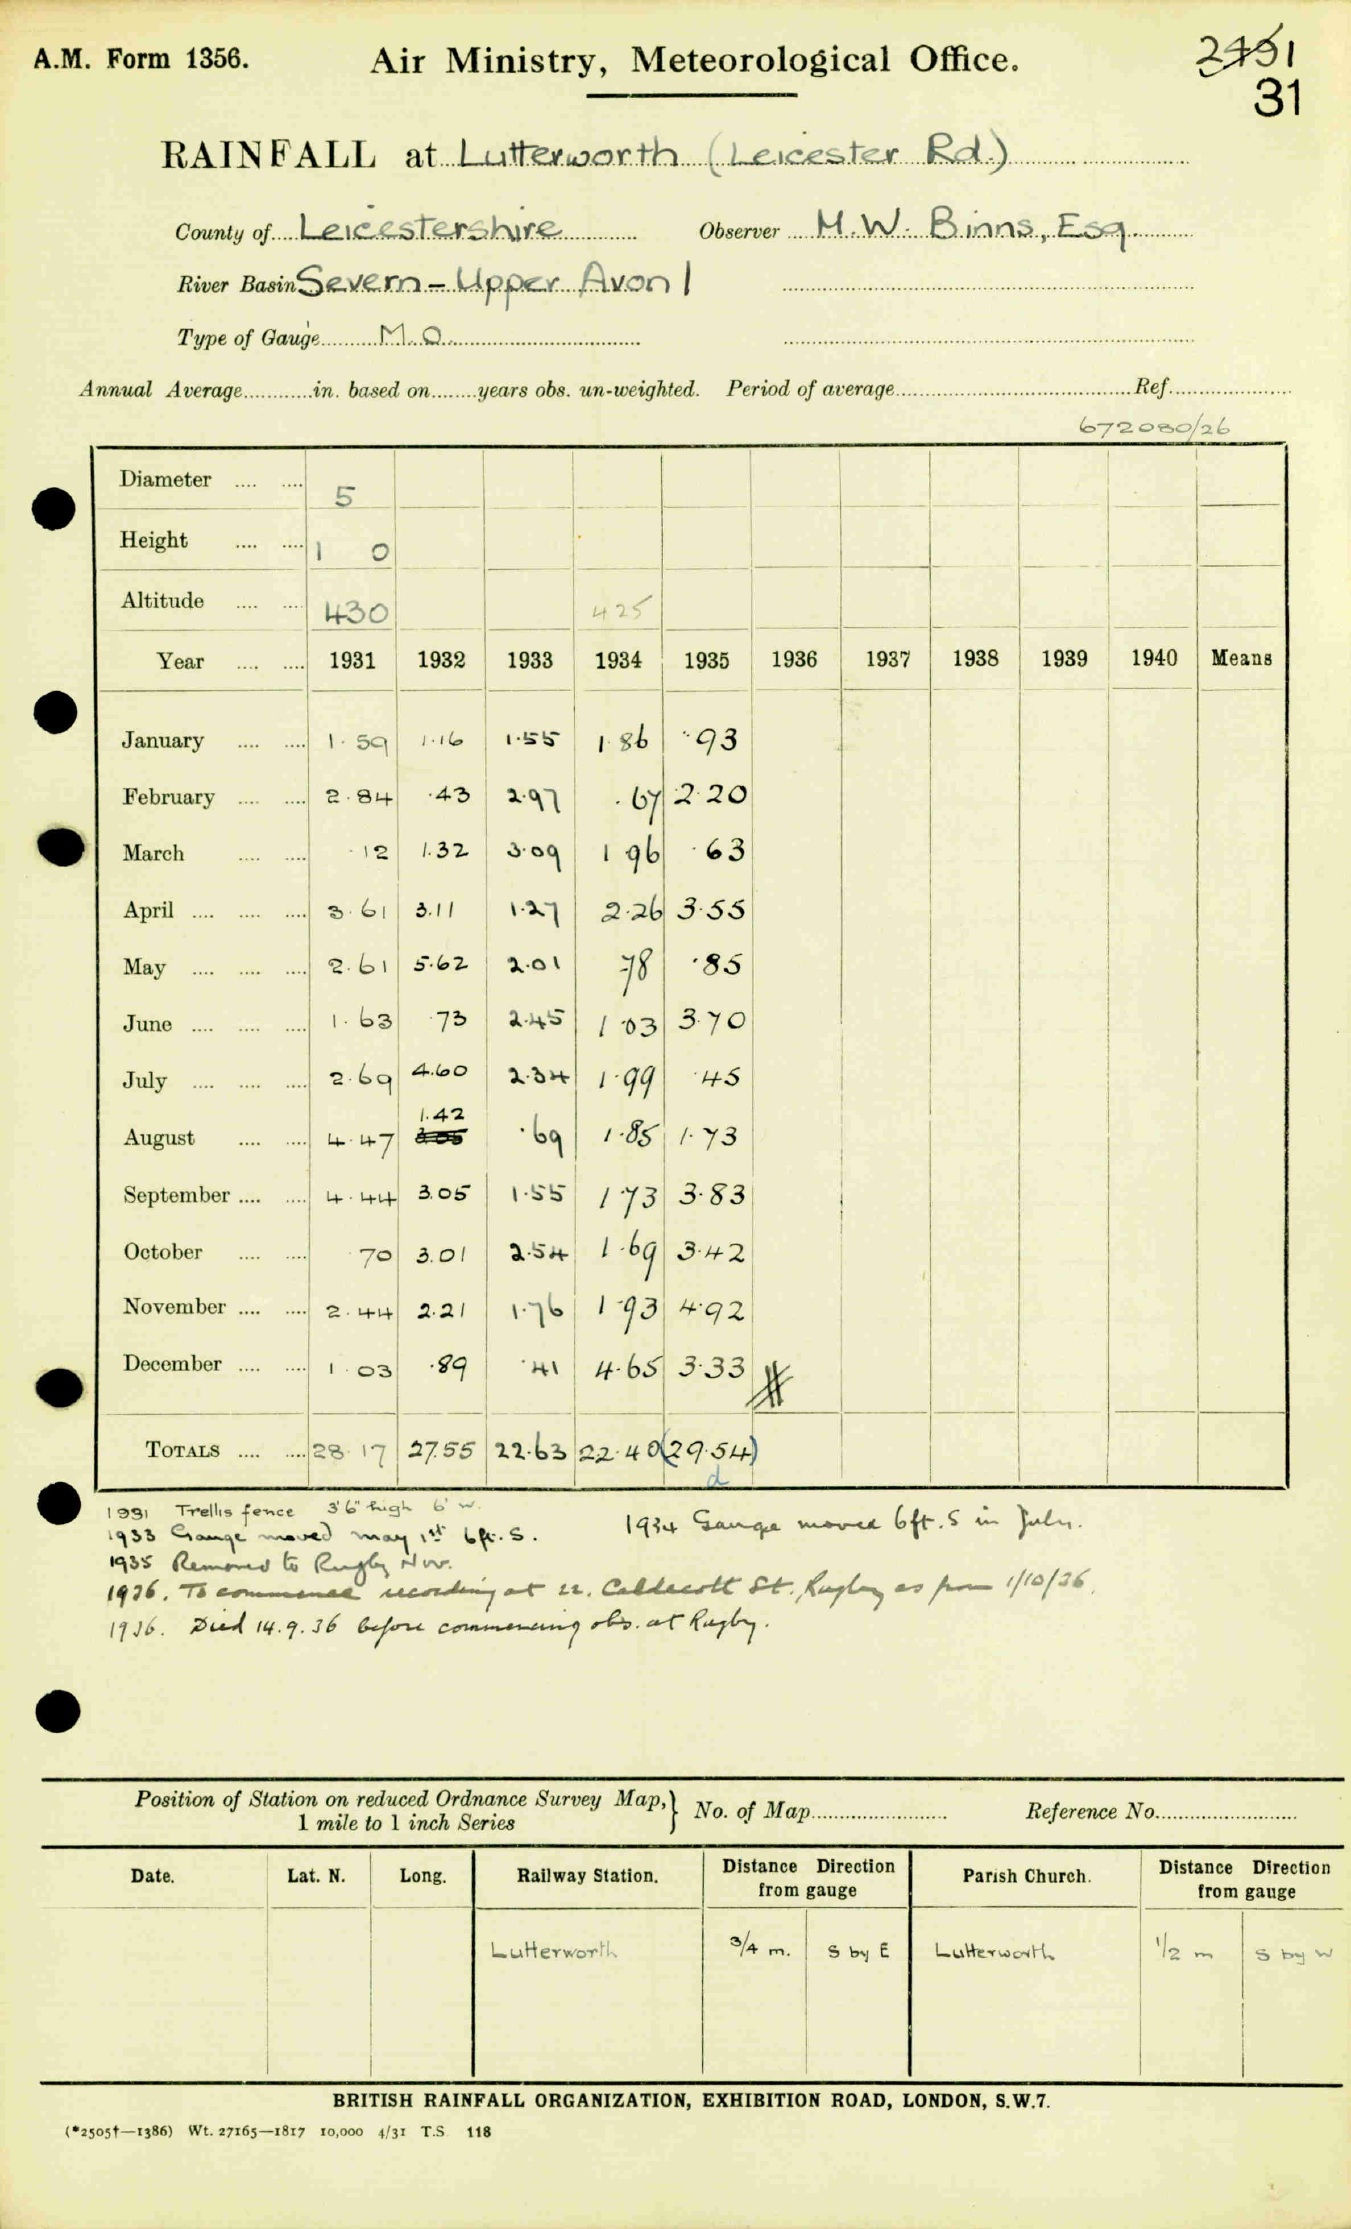 A.M. Form 1356. Air Ministry, Meteorological Office. 2451
31
RAINFALL at Lutterworth (Leicester Rd.)
County of Leicestershire Observer M.W. Binns, Esq.
River Basin Severn - Upper Avon 1
Type of Gauge M.O.
Annual Average in. based on years obs. un-weighted. Period of average Ref
672080/26
Diameter 5
Height 1 0
Altitude 430 425
Year 1931 1932 1933 1934 1935 1936 1937 1938 1939 1940 Means
January 1.59 1.16 1.55 1.86 .93
February 2.84 .43 2.97 .67 2.20
March .12 1.32 3.09 1.96 .63
April 3.61 3.11 1.27 2.26 3.55
May 2.61 5.62 2.01 .78 .85
June 1.63 .73 2.45 1.03 3.70
July 2.69 4.60 2.34 1.99 .45
1.42
August 4.47 3.05 .69 1.85 1.73
September 4.44 3.05 1.55 1.73 3.83
October .70 3.01 2.54 1.69 3.42
November 2.44 2.21 1.76 1.93 4.92
December 1.03 .89 .41 4.65 3.33
TOTALS 28.17 27.55 22.63 22.40 (29.54)
d
1931 Trellis fence 3'6" high 6' w.
1933 Gauge moved may 1st 6ft. S. 1934 Gauge moved 6ft. S in July.
1935 Removed to Rugby Nov.
1936. To commence recording at 22. Caldecott St. Rugby as from 1/10/36.
1936. Died 14.9.36 before commencing obs. at Rugby.
Position of Station on reduced Ordnance Survey Map, 1 mile to 1 inch Series } No. of Map Reference No.
Date. Lat. N. Long. Railway Station. Distance Direction from gauge Parish Church. Distance Direction from gauge
Lutterworth 3/4 m. S by E Lutterworth 1/2 m S by W
BRITISH RAINFALL ORGANIZATION, EXHIBITION ROAD, LONDON, S.W.7.
(*2505†—1386) Wt. 27165—1817 10,000 4/31 T.S. 118